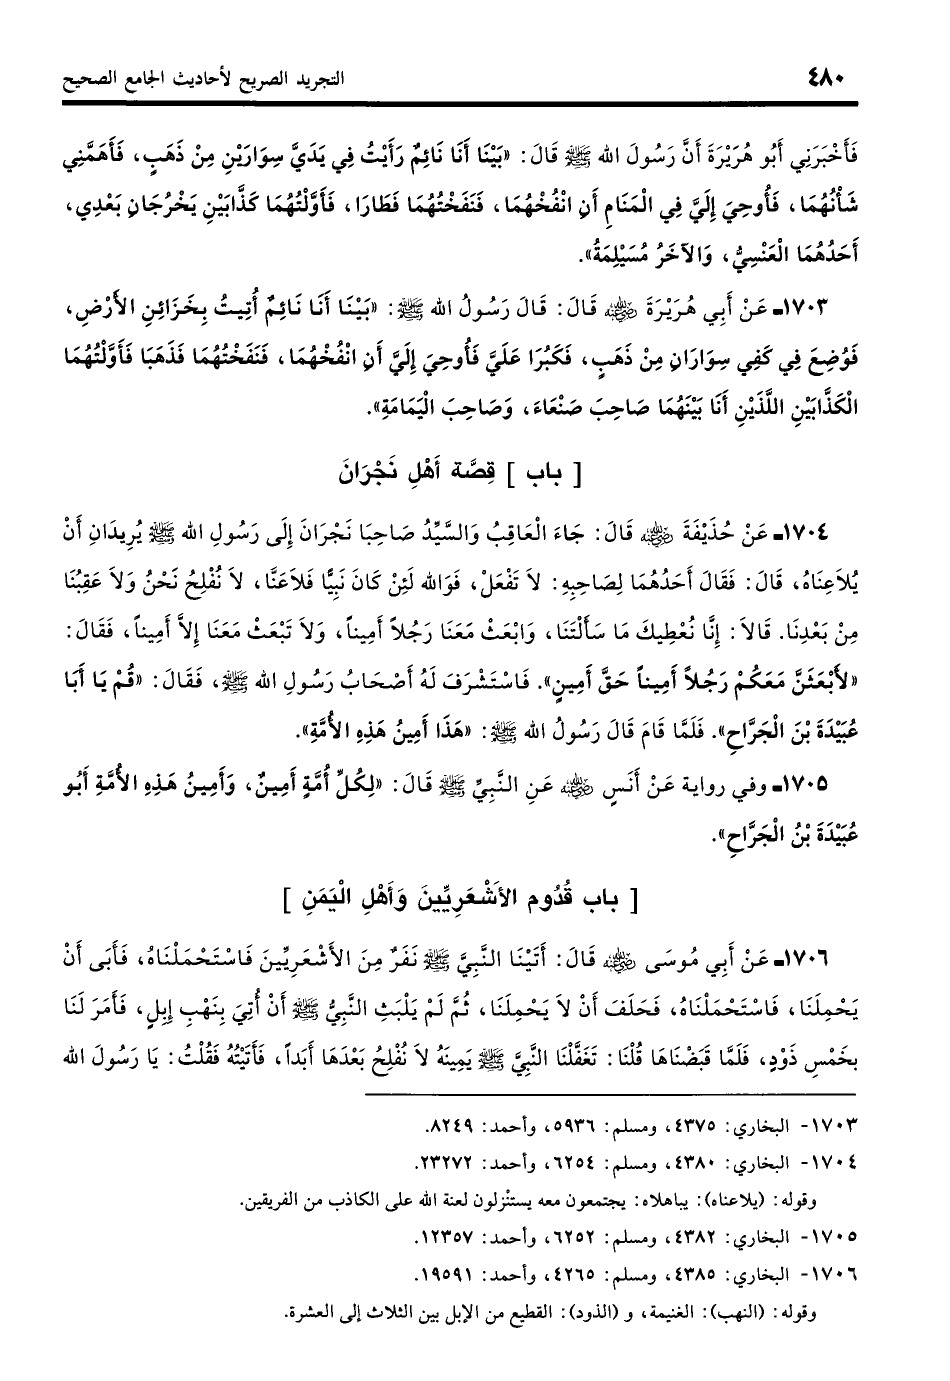 ٤٨٠ التجريد الصريح لأحاديث الجامع الصحيح
فَأَخْبَرَنِي أَبُو هُرَيْرَةَ أَنَّ رَسُولَ الله ﷺ قَالَ: «بَيْنَا أَنَا نَائِمٌ رَأَيْتُ فِي يَدَيَّ سِوَارَيْنِ مِنْ ذَهَبٍ، فَأَهَمَّنِي
شَأْنُهُمَا، فَأُوحِيَ إِلَيَّ فِي الْمَنَامِ أَنِ انْفُخْهُمَا، فَنَفَخْتُهُمَا فَطَارَا، فَأَوَّلْتُهُمَا كَذَّابَيْنِ يَخْرُجَانِ بَعْدِي،
أَحَدُهُمَا الْعَنْسِيُّ، وَالآخَرُ مُسَيْلِمَةُ».
١٧٠٣ـ عَنْ أَبِي هُرَيْرَةَ رضي الله عنه قَالَ: قَالَ رَسُولُ الله ﷺ: «بَيْنَا أَنَا نَائِمٌ أُتِيتُ بِخَزَائِنِ الأَرْضِ،
فَوُضِعَ فِي كَفِي سِوَارَانِ مِنْ ذَهَبٍ، فَكَبُرَا عَلَيَّ فَأُوحِيَ إِلَيَّ أَنِ انْفُخْهُمَا، فَنَفَخْتُهُمَا فَذَهَبَا فَأَوَّلْتُهُمَا
الْكَذَّابَيْنِ اللَّذَيْنِ أَنَا بَيْنَهُمَا صَاحِبَ صَنْعَاءَ، وَصَاحِبَ الْيَمَامَةِ».
[ باب ] قِصَّة أَهْلِ نَجْرَانَ
١٧٠٤ـ عَنْ حُذَيْفَةَ رضي الله عنه قَالَ: جَاءَ الْعَاقِبُ وَالسَّيِّدُ صَاحِبَا نَجْرَانَ إِلَى رَسُولِ الله ﷺ يُرِيدَانِ أَنْ
يُلاَعِنَاهُ، قَالَ: فَقَالَ أَحَدُهُمَا لِصَاحِبِهِ: لاَ تَفْعَلْ، فَوَالله لَئِنْ كَانَ نَبِيًّا فَلاَعَنَّا، لاَ نُفْلِحُ نَحْنُ وَلاَ عَقِبُنَا
مِنْ بَعْدِنَا. قَالاَ: إِنَّا نُعْطِيكَ مَا سَأَلْتَنَا، وَابْعَثْ مَعَنَا رَجُلاً أَمِيناً، وَلاَ تَبْعَثْ مَعَنَا إِلاَّ أَمِيناً، فَقَالَ:
«لأَبْعَثَنَّ مَعَكُمْ رَجُلاً أَمِيناً حَقَّ أَمِينٍ». فَاسْتَشْرَفَ لَهُ أَصْحَابُ رَسُولِ الله ﷺ، فَقَالَ: «قُمْ يَا أَبَا
عُبَيْدَةَ بْنَ الْجَرَّاحِ». فَلَمَّا قَامَ قَالَ رَسُولُ الله ﷺ: «هَذَا أَمِينُ هَذِهِ الأُمَّةِ».
١٧٠٥ـ وفي رواية عَنْ أَنَسٍ رضي الله عنه عَنِ النَّبِيِّ ﷺ قَالَ: «لِكُلِّ أُمَّةٍ أَمِينٌ، وَأَمِينُ هَذِهِ الأُمَّةِ أَبُو
عُبَيْدَةَ بْنُ الْجَرَّاحِ».
[ باب قُدُوم الأَشْعَرِيِّينَ وَأَهْلِ الْيَمَنِ ]
١٧٠٦ـ عَنْ أَبِي مُوسَى رضي الله عنه قَالَ: أَتَيْنَا النَّبِيَّ ﷺ نَفَرٌ مِنَ الأَشْعَرِيِّينَ فَاسْتَحْمَلْنَاهُ، فَأَبَى أَنْ
يَحْمِلَنَا، فَاسْتَحْمَلْنَاهُ، فَحَلَفَ أَنْ لاَ يَحْمِلَنَا، ثُمَّ لَمْ يَلْبَثِ النَّبِيُّ ﷺ أَنْ أُتِيَ بِنَهْبِ إِبِلٍ، فَأَمَرَ لَنَا
بِخَمْسِ ذَوْدٍ، فَلَمَّا قَبَضْنَاهَا قُلْنَا: تَغَفَّلْنَا النَّبِيَّ ﷺ يَمِينَهُ لاَ نُفْلِحُ بَعْدَهَا أَبَداً، فَأَتَيْتُهُ فَقُلْتُ: يَا رَسُولَ الله
١٧٠٣- البخاري: ٤٣٧٥، ومسلم: ٥٩٣٦، وأحمد: ٨٢٤٩.
١٧٠٤- البخاري: ٤٣٨٠، ومسلم: ٦٢٥٤، وأحمد: ٢٣٢٧٢.
وقوله: (يلاعناه): يباهلاه: يجتمعون معه يستنْزلون لعنة الله على الكاذب من الفريقين.
١٧٠٥- البخاري: ٤٣٨٢، ومسلم: ٦٢٥٢، وأحمد: ١٢٣٥٧.
١٧٠٦- البخاري: ٤٣٨٥، ومسلم: ٤٢٦٥، وأحمد: ١٩٥٩١.
وقوله: (النهب): الغنيمة، و (الذود): القطيع من الإبل بين الثلاث إلى العشرة.